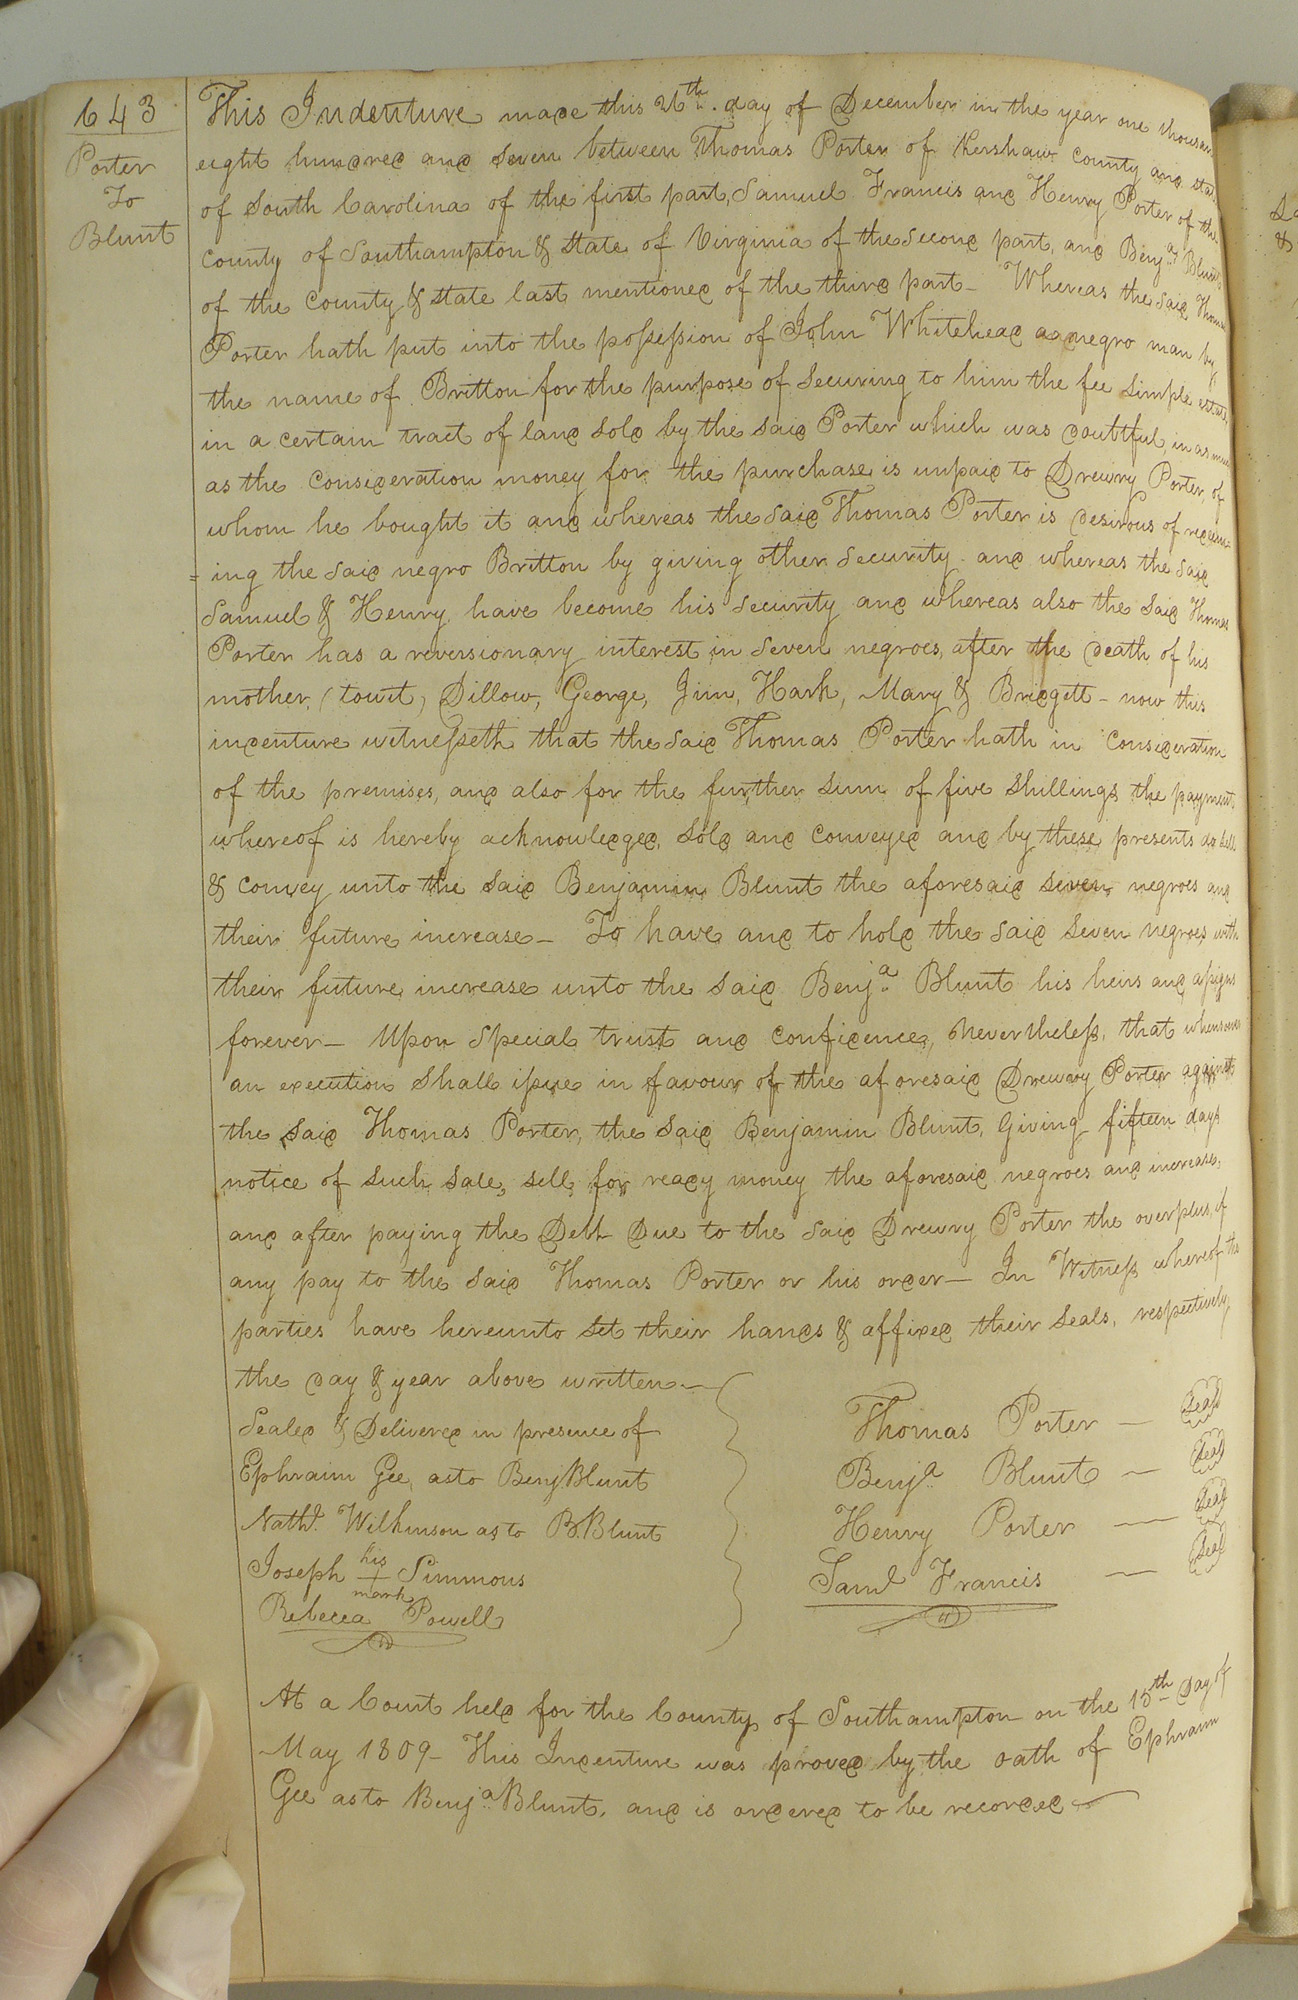 643
Porter
To
Blunt
This Indenture made this 26th. day of December in the year one thousand
eight hundred and seven between Thomas Porter of Kershaw County and state
of South Carolina of the first part, Samuel Francis and Henry Porter of the
County of Southampton & state of Virginia of the second part, and Benja. Blunt
of the County & state last mentioned of the third part - Whereas the said Thomas
Porter hath put into the possession of John Whitehead a negro man by
the name of Britton for the purpose of securing to him the fee simple estate
in a certain tract of land sold by the said Porter which was doubtful, in as much
as the consideration money for the purchase is unpaid to Drewry Porter, of
whom he bought it and whereas the said Thomas Porter is desirous of redeem-
=ing the said negro Britton by giving other security and whereas the said
Samuel & Henry have become his security and whereas also the said Thomas
Porter has a reversionary interest in seven negroes, after the death of his
mother, (towit, Dillow, George, Jim, Hark, Mary & Bridgett - now this
indenture witnesseth that the said Thomas Porter hath in consideration
of the premises, and also for the further sum of five shillings the payment
whereof is hereby acknowledged, sold and conveyed and by these presents do sell
& convey unto the said Benjamin Blunt the aforesaid seven negroes and
their future increase - To have and to hold the said seven negroes with
their future increase unto the said Benja. Blunt his heirs and assigns
forever - Upon special trust and confidence, nevertheless, that whensoever
an execution shall issue in favour of the aforesaid Drewry Porter against
the said Thomas Porter, the said Benjamin Blunt, Giving fifteen days
notice of such sale, sell for ready money the aforesaid negroes and increase,
and after paying the Debt Due to the said Drewry Porter the overplus, if
any pay to the said Thomas Porter or his order - In Witness whereof the
parties have hereunto set their hands & affixed their seals, respectively,
the day & year above written -
Sealed & Delivered in presence of
Ephraim Gee, asto Benj Blunt
Nathl. Wilkinson as to B. Blunt
his
Joseph + Simmons
mark
Rebecca Powell
Thomas Porter - Seal
Benja. Blunt - Seal
Henry Porter - Seal
Saml Francis - Seal
At a Court held for the County of Southampton on the 15th Day of
May 1809 - This Indenture was proved by the oath of Ephraim
Gee asto Benja. Blunt, and is ordered to be recorded